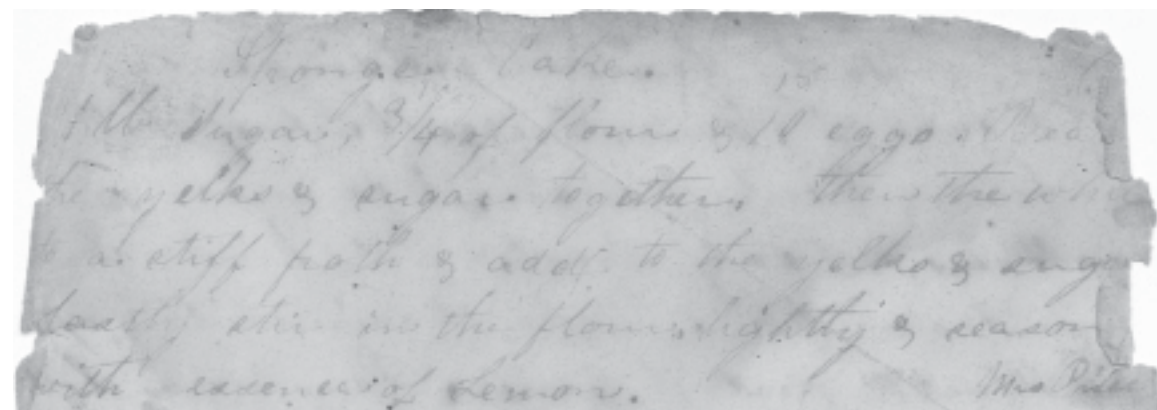 Sponge Cake.
1 lb Sugar, 3/4 of flour & 10 eggs. Bea
the yelks & sugar together. then the whi
to a stiff froth & add to the yelks & sug
Lastly stir in the flour lightly & season
with essence of Lemon.
Mrs